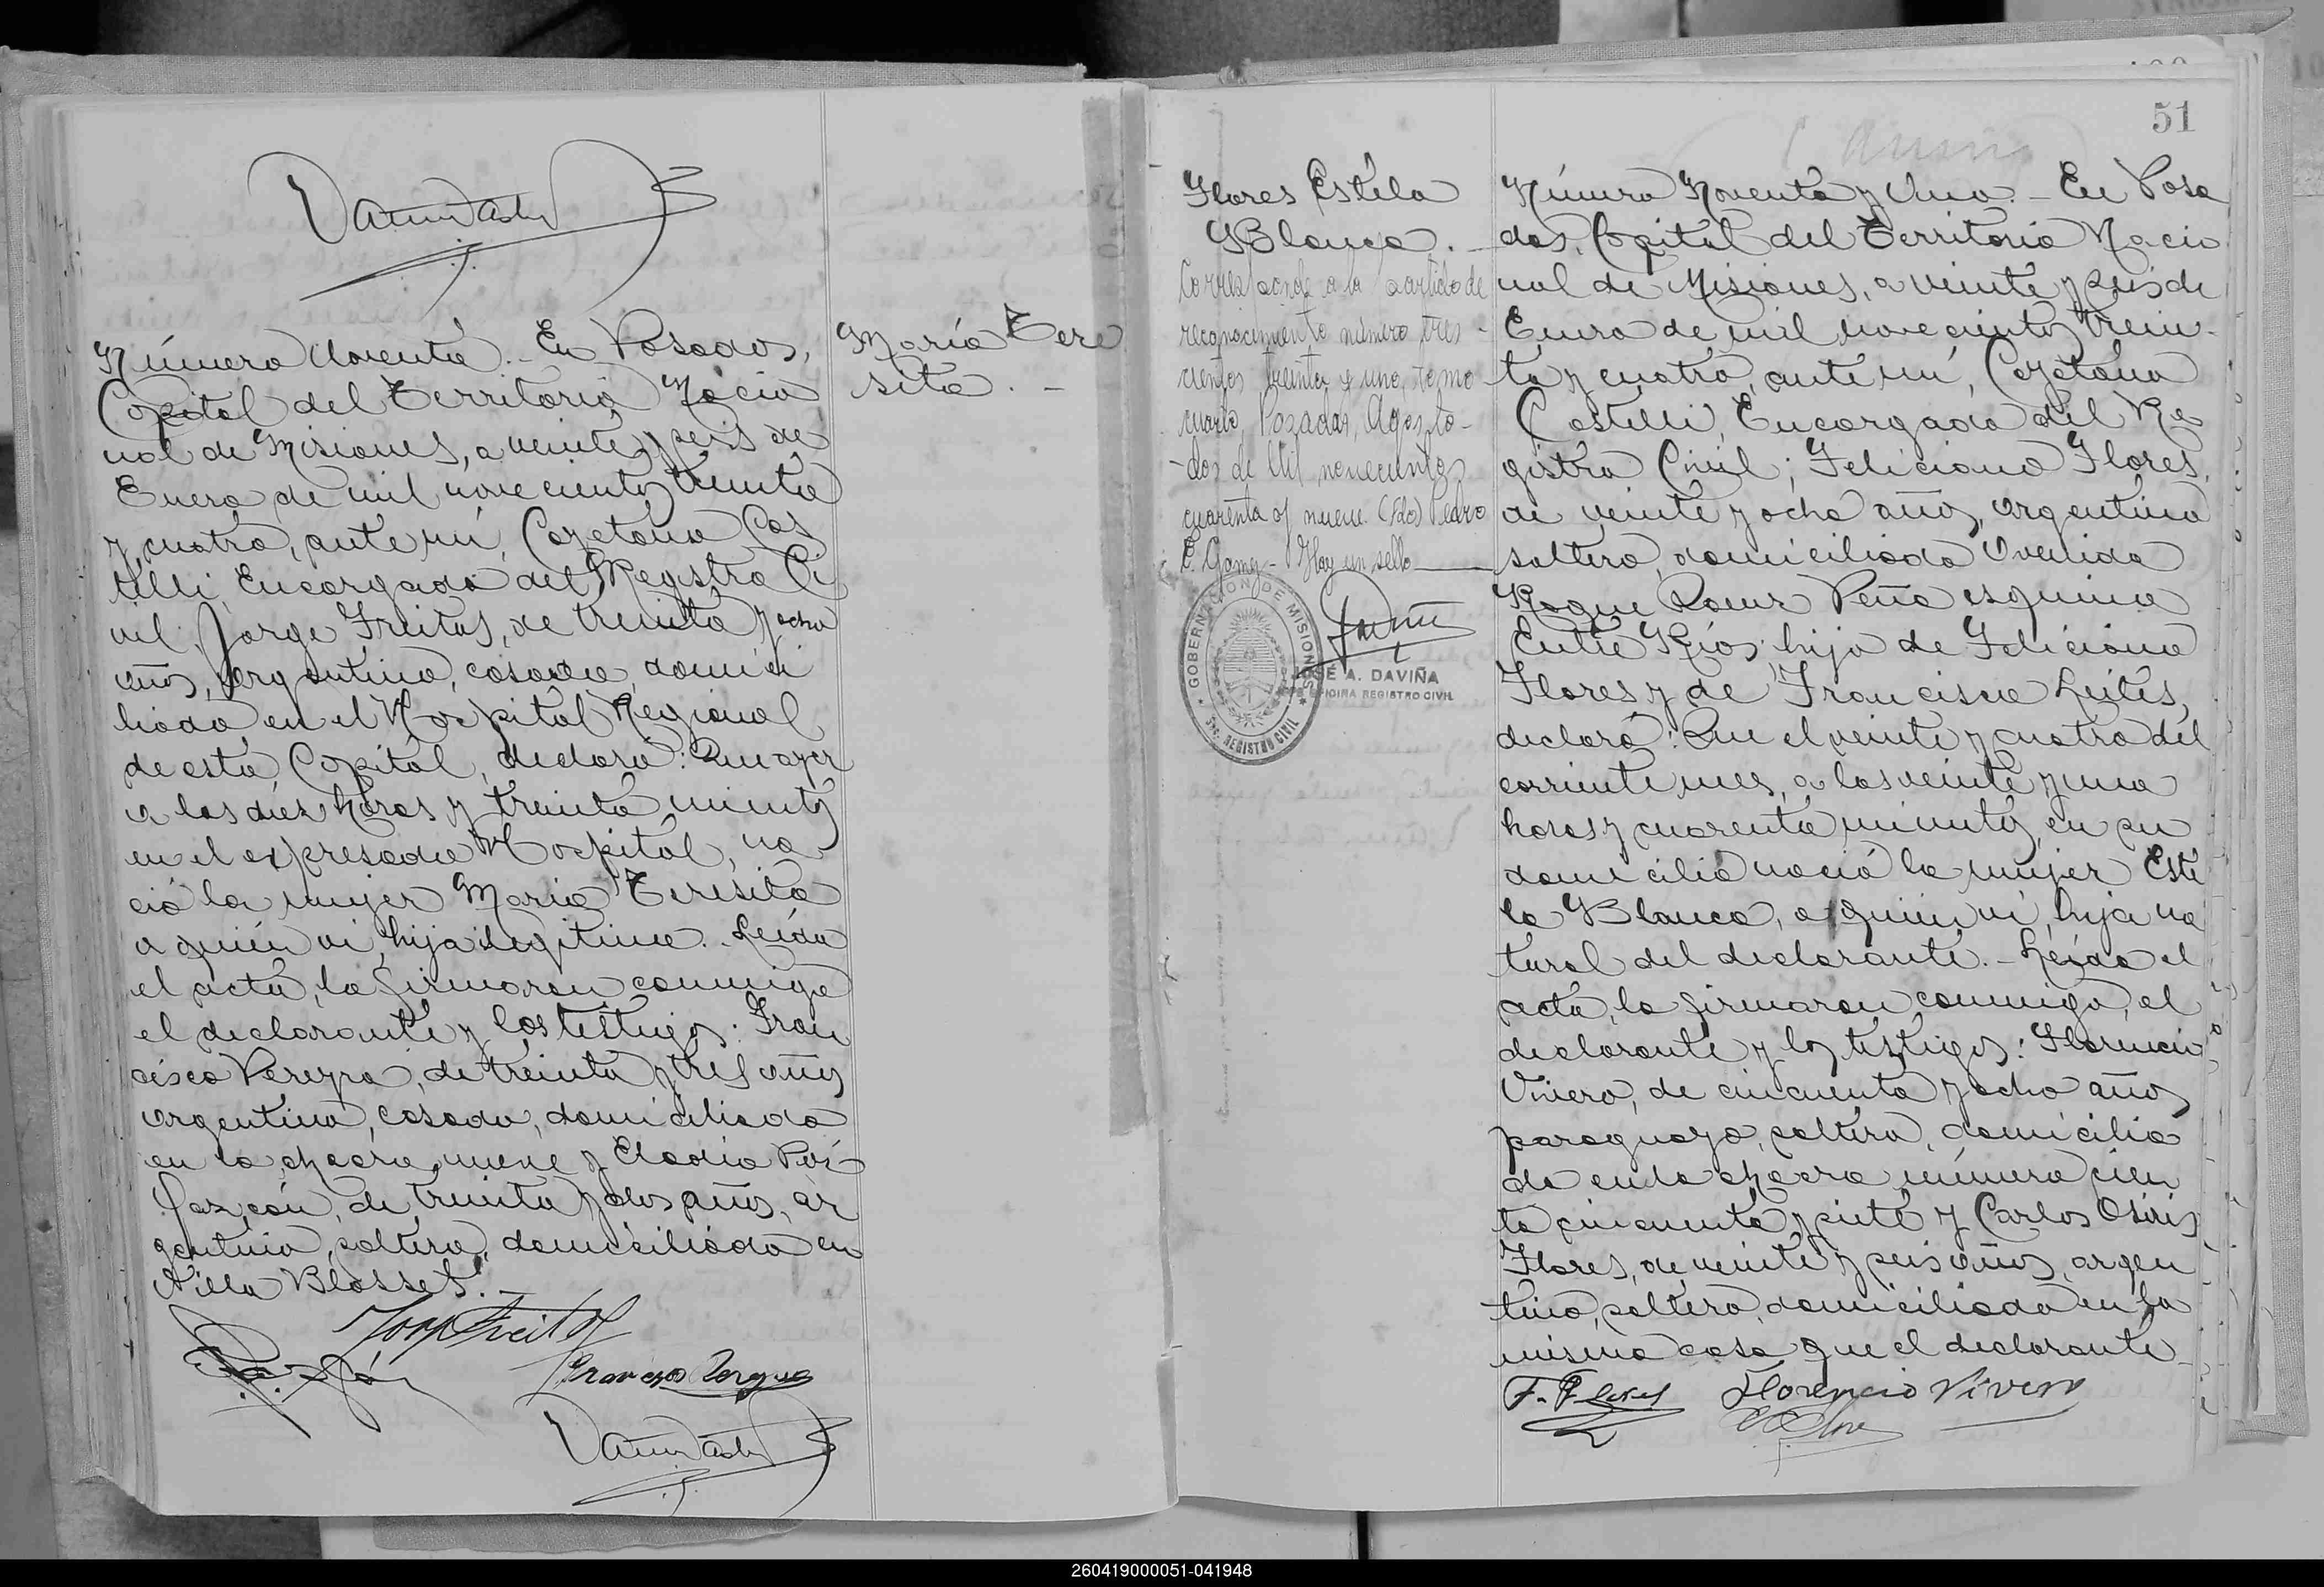 Número Noventa. - En Posadas,
Capital del Territorio Nacio
nal de Misiones, a veinte y seis de
Enero de mil novecientos treinta
y cuatro, ante mí, Cayetano Cas
telli, Encargado del Registro Ci
vil: Jorge Freitas, de treinta y ocho
años, argentino, casado, domici
liado en el Hospital Regional
de esta Capital, declaró: Que ayer
a las diez horas y treinta minutos
en el expresado Hospital, na
ció la mujer María Teresita
a quién ví, hija legítima. - Leída
el acta, la firmaron conmigo
el declarante y los testigos: Fran
cisco Pereyra, de treinta y tres años
argentino, casado, domiciliado
en la chacra nueve y Eladio
de treinta y dos años, ar
gentino, soltero, domiciliado en
Villa Blosset. -
María Tere
sita. -
51
Flores Estela
Blanca. -
Corresponde a la partida de
reconocimiento número tres-
cientos treinta y uno, tomo
cuarto, Pozadas, Agosto-
-dos de Mil novecientos
cuarenta y nueve. (Fdo) Pedro
E. Gomez - Hay un sello
GOBERNACION DE MISIONES
REGISTRO CIVIL
JOSÉ A. DAVIÑA
OFICINA REGISTRO CIVIL
Número Noventa y Uno. - En Posa
das, Capital del Territorio Nacio
nal de Misiones, a veinte y seis de
Enero de mil novecientos trein-
ta y cuatro, ante mí, Cayetano
Castelli, Encargado del Re
gistro Civil; Feliciano Flores,
de veinte y ocho años, argentino
soltero, domiciliado Avenida
Roque Saenz Peña esquina
Entre Ríos, hijo de Feliciano
Flores y de Francisca Leites,
declaró: Que el veinte y cuatro del
corriente mes, a las veinte y una
horas y cuarenta minutos, en su
domicilio nació la mujer Este
la Blanca, a quien ví, hija na
tural del declarante. - Leída el
acta, la firmaron conmigo, el
declarante y los testigos: Florencio
Vivero, de cincuenta y ocho años
paraguayo, soltero, domicilia
do en la chacra número cien
to cincuenta y siete y Carlos Osiris
Flores, de veinte y seis años, argen
tino, soltero, domiciliado en la
misma casa que el declarante -
F. Flores Florencio Vivero
260419000051-041948